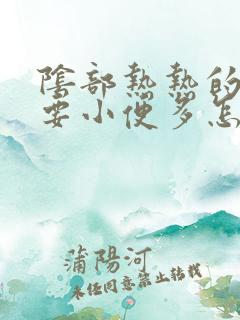 陰部熱熱的
要小便多怎
蒲陽河
未经同意禁止转载